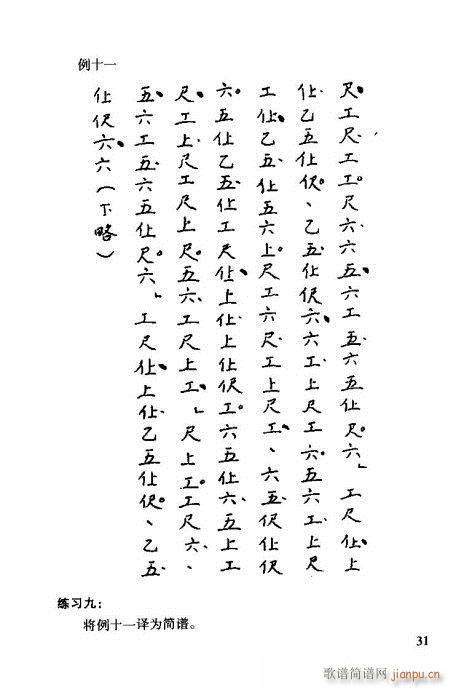 例十一
尺工尺工工尺六六五六工五六五仩尺六」工尺仩上
仩乙五仩伬、乙五仩伬六六工上尺工六五六工上尺
工仩乙五仩五六上尺工六尺工上尺工、六五伬仩伬
六五仩乙五仩工尺仩上仩上仩伬工六五仩六五上工
尺工上尺工尺上尺五六工尺上工」尺上工工尺六、
五六工五六五仩尺六」工尺仩上仩乙五仩伬、乙五
仩伬六六（下略）
练习九：
将例十一译为简谱。
31
歌谱简谱网
jianpu.cn